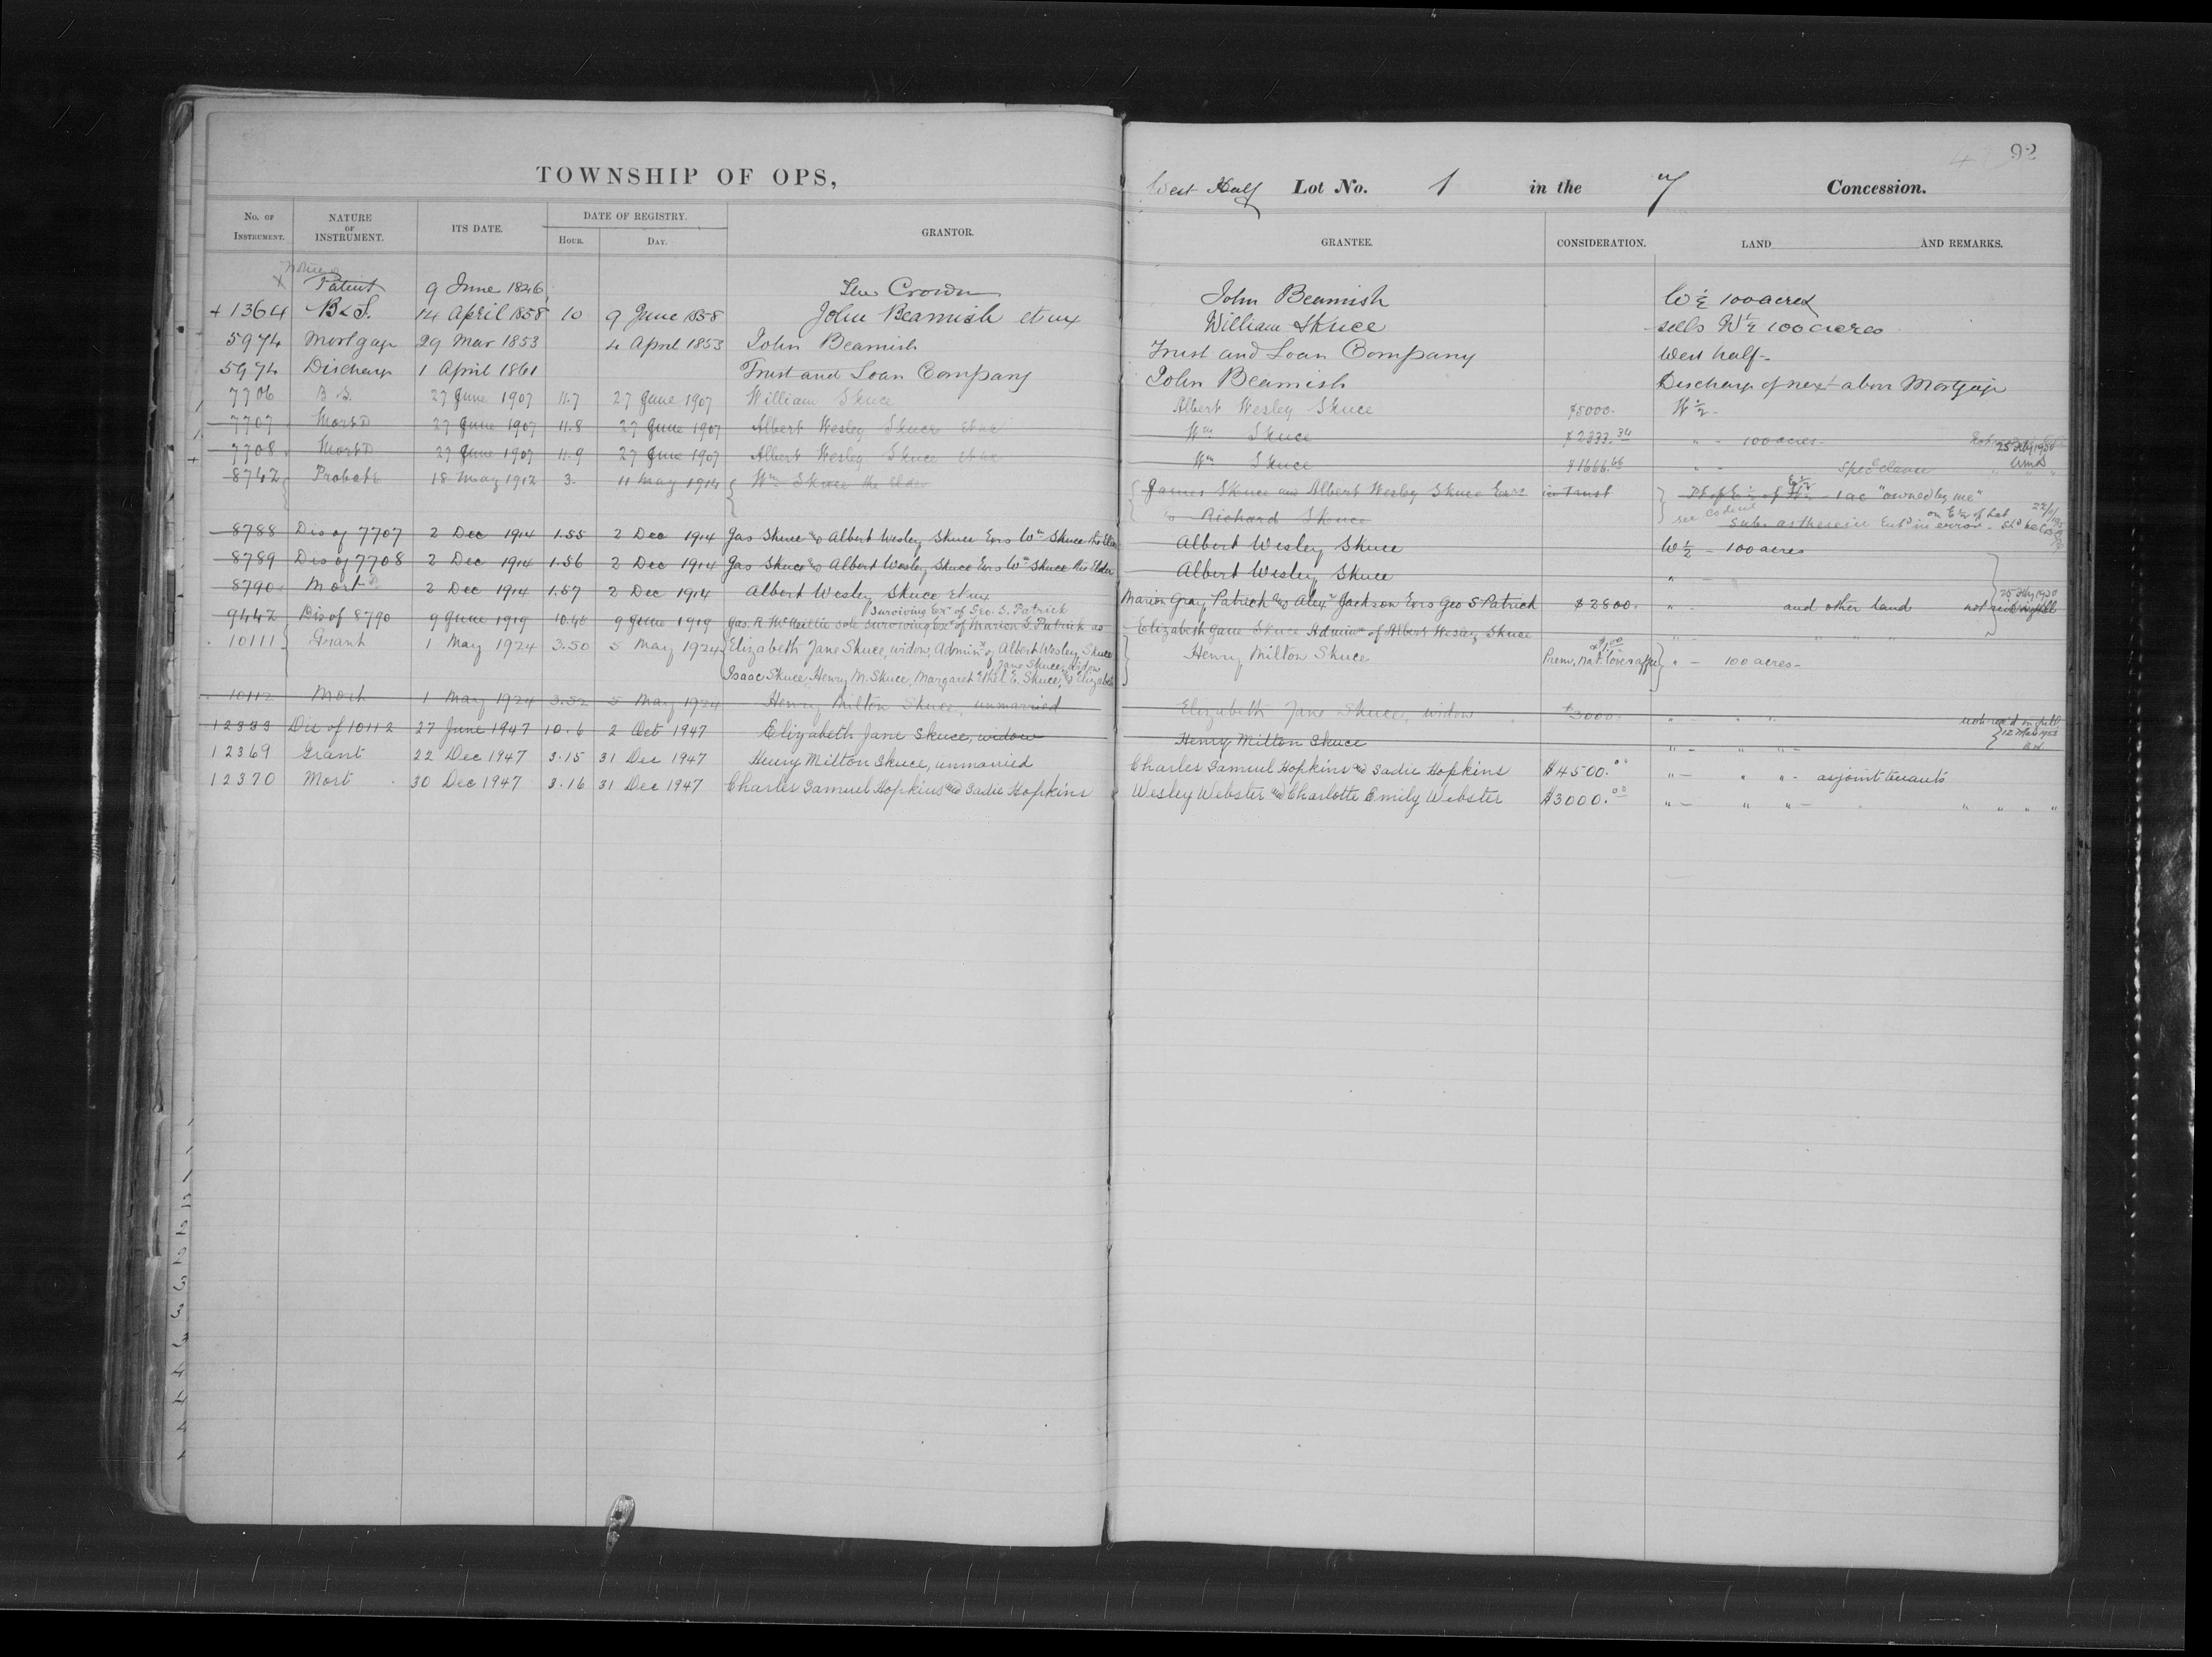 92
TOWNSHIP OF OPS, West Half Lot No. 1 in the 7 Concession.
No. OF INSTRUMENT. NATURE OF INSTRUMENT. ITS DATE. DATE OF REGISTRY. HOUR. DAY. GRANTOR. GRANTEE. CONSIDERATION. LAND AND REMARKS.
Patent 9 June 1826 The Crown John Beamish W ½ 100 acres
+ 1364 B & S. 14 April 1858 10 9 June 1858 John Beamish et ux William Skuce sells W ½ 100 acres
5974 Mortgage 29 Mar 1853 4 April 1853 John Beamish Trust and Loan Company West half
5974 Discharge 1 April 1861 Trust and Loan Company John Beamish Discharge of next above Mortgage
7706 B. S. 27 June 1907 11.7 27 June 1907 William Skuce Albert Wesley Skuce $5000. W ½ -
7707 Mort D 27 June 1907 11.8 27 June 1907 Albert Wesley Skuce et ux Wm Skuce $2333.34 " - 100 acres -
7708 Mort D 27 June 1907 11.9 27 June 1907 Albert Wesley Skuce et ux Wm Skuce $1666.66 " - Spec Clause
8742 Probate 18 May 1912 3. 11 May 1914 Wm Skuce the Elder James Skuce and Albert Wesley Skuce Exrs in Trust Pt of E ½ of W ½ - 1 ac "owned by me"
to Richard Skuce see Codicil sub. as therein Ent'd in error - on E ½ of Lot
8788 Dis of 7707 2 Dec 1914 1.55 2 Dec 1914 Jas Skuce & Albert Wesley Skuce Exrs Wm Skuce the Elder Albert Wesley Skuce W ½ - 100 acres
8789 Dis of 7708 2 Dec 1914 1.56 2 Dec 1914 Jas Skuce & Albert Wesley Skuce Exrs Wm Skuce the Elder Albert Wesley Skuce " -
8790 Mort D 2 Dec 1914 1.57 2 Dec 1914 Albert Wesley Skuce et ux Marion Gray Patrick & Alexr Jackson Exrs Geo S Patrick $2800. " - and other land
Surviving Exr of Geo. S. Patrick
9442 Dis of 8790 9 June 1919 10.40 9 June 1919 Jas. R. McNeillie sole surviving Exr of Marion G. Patrick as Elizabeth Jane Skuce Adminx of Albert Wesley Skuce " - " " "
10111 Grant 1 May 1924 3.50 5 May 1924 Elizabeth Jane Skuce, widow, Adminx of Albert Wesley Skuce Henry Milton Skuce $1.00 Prem, nat. love & aff " - 100 acres -
Jane Skuce, widow
Isaac Skuce, Henry M. Skuce, Margaret Ethel E. Skuce, & Elizabeth
10112 Mort 1 May 1924 3.52 5 May 1924 Henry Milton Skuce, unmarried Elizabeth Jane Skuce, widow $3000. " - " " not rec'd in full
12333 Dis of 10112 27 June 1947 10.6 2 Oct 1947 Elizabeth Jane Skuce, widow Henry Milton Skuce " - " " -
12369 Grant 22 Dec 1947 3.15 31 Dec 1947 Henry Milton Skuce, unmarried Charles Samuel Hopkins and Sadie Hopkins $4500.00 " - " " - as joint tenants
12370 Mort. 30 Dec 1947 3.16 31 Dec 1947 Charles Samuel Hopkins and Sadie Hopkins Wesley Webster and Charlotte Emily Webster $3000.00 " - " " - " " " "